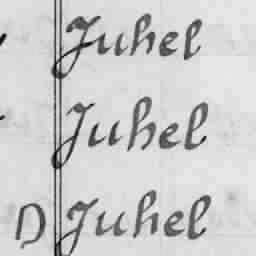 Juhel
Juhel
D Juhel